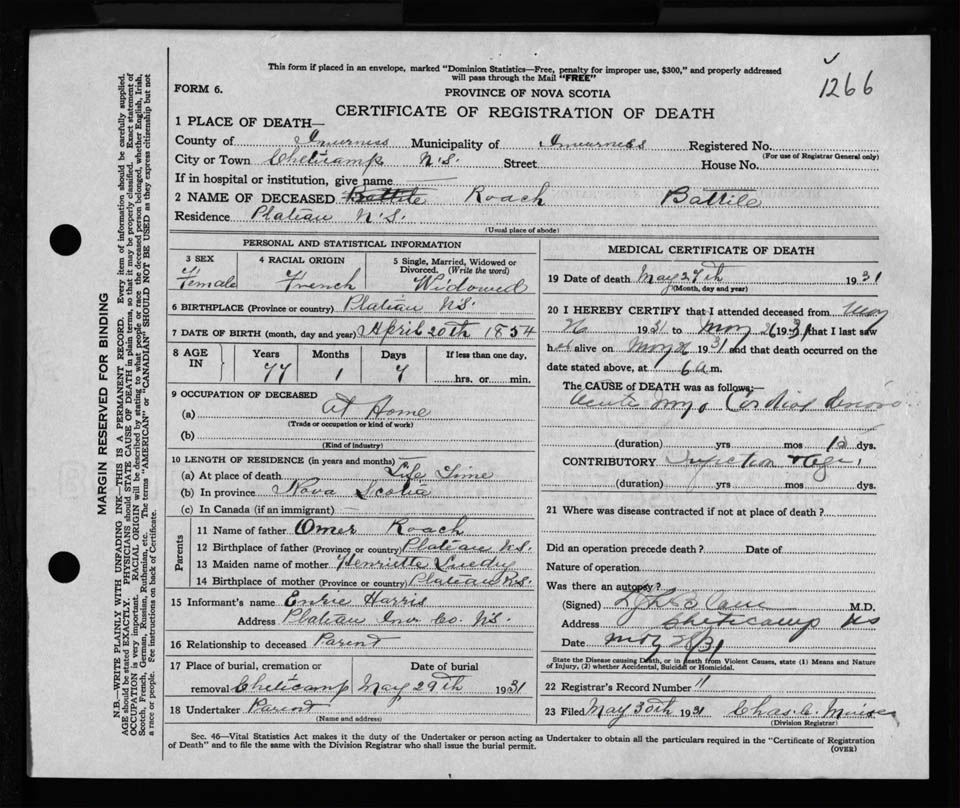 This form if placed in an envelope, marked "Dominion Statistics—Free, penalty for improper use, $300," and properly addressed
will pass through the Mail "FREE"
1266
FORM 6.
PROVINCE OF NOVA SCOTIA
CERTIFICATE OF REGISTRATION OF DEATH
1 PLACE OF DEATH—
County of Inverness Municipality of Inverness Registered No.
(For use of Registrar General only)
City or Town Cheticamp N.S. Street House No.
If in hospital or institution, give name
2 NAME OF DECEASED Roach
Residence Plateau N.S.
(Usual place of abode)
PERSONAL AND STATISTICAL INFORMATION
3 SEX 4 RACIAL ORIGIN 5 Single, Married, Widowed or
Divorced. (Write the word)
Female French Widowed
6 BIRTHPLACE (Province or country) Plateau N.S.
7 DATE OF BIRTH (month, day and year) April 20th 1854
8 AGE IN Years Months Days If less than one day,
77 1 7 hrs. or min.
9 OCCUPATION OF DECEASED
(a) At Home
(Trade or occupation or kind of work)
(b)
(Kind of industry)
10 LENGTH OF RESIDENCE (in years and months)
(a) At place of death Life Time
(b) In province Nova Scotia
(c) In Canada (if an immigrant)
Parents
11 Name of father Omer Roach
12 Birthplace of father (Province or country) Plateau N.S.
13 Maiden name of mother Henriette
14 Birthplace of mother (Province or country) Plateau N.S.
15 Informant's name Harris
Address Plateau Inv. Co. N.S.
16 Relationship to deceased Parent
17 Place of burial, cremation or Date of burial
removal Cheticamp May 29th 1931
18 Undertaker Parent
(Name and address)
MEDICAL CERTIFICATE OF DEATH
19 Date of death May 27th 1931
(Month, day and year)
20 I HEREBY CERTIFY that I attended deceased from May
26 1931 to May 26 1931 that I last saw
her alive on May 26 1931 and that death occurred on the
date stated above, at 6 a m.
The CAUSE of DEATH was as follows:—
Acute
(duration) yrs mos 12 dys.
CONTRIBUTORY Infection + age
(duration) yrs mos dys.
21 Where was disease contracted if not at place of death?
Did an operation precede death? Date of
Nature of operation
Was there an autopsy?
(Signed) M.D.
Address Cheticamp NS
Date May 28/31
State the Disease causing Death, or in death from Violent Causes, state (1) Means and Nature
of Injury, (2) whether Accidental, Suicidal or Homicidal.
22 Registrar's Record Number 11
23 Filed May 30th 1931 Chas. C.
(Division Registrar)
Sec. 46—Vital Statistics Act makes it the duty of the Undertaker or person acting as Undertaker to obtain all the particulars required in the "Certificate of Registration
of Death" and to file the same with the Division Registrar who shall issue the burial permit.
(OVER)
MARGIN RESERVED FOR BINDING
N.B.—WRITE PLAINLY WITH UNFADING INK—THIS IS A PERMANENT RECORD. Every item of information should be carefully supplied.
AGE should be stated EXACTLY. PHYSICIANS should STATE CAUSE OF DEATH in plain terms, so that it may be properly classified. Exact statement of
OCCUPATION is very important. RACIAL ORIGIN will be described by stating to what people or race the deceased person belonged, whether English, Irish,
Scotch, French, German, Russian, Ruthenian, etc. The terms "AMERICAN" or "CANADIAN" SHOULD NOT BE USED as they express citizenship but not
a race or people. See instructions on back of Certificate.